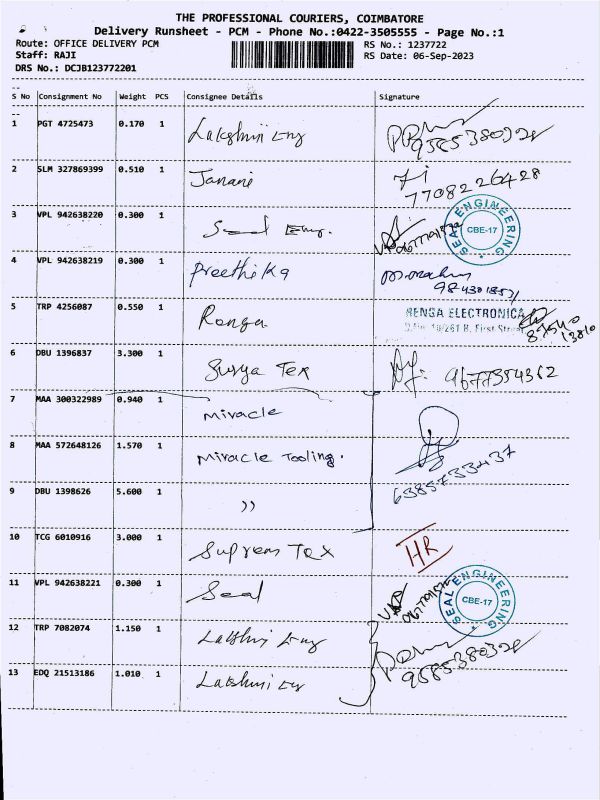 THE PROFESSIONAL COURIERS, COIMBATORE
Delivery Runsheet - PCM - Phone No.:0422-3505555 - Page No.:1
Route: OFFICE DELIVERY PCM RS No.: 1237722
Staff: RAJI RS Date: 06-Sep-2023
DRS No.: DCJB123772201
S No Consignment No Weight PCS Consignee Details Signature
1 PGT 4725473 0.170 1 Lakshmi Eng 9585380928
2 SLM 327869399 0.510 1 Janani 7708226428
3 VPL 942638220 0.300 1 Seal Eng. SEAL ENGINEERING CBE-17
4 VPL 942638219 0.300 1 Preethika
5 TRP 4256087 0.550 1 Renga RENGA ELECTRONICA
First Street 87540
6 DBU 1396837 3.300 1 Surya Tex 9677354362
7 MAA 300322989 0.940 1 Miracle
8 MAA 572648126 1.570 1 Miracle Tooling. 6385733437
9 DBU 1398626 5.600 1 ))
10 TCG 6010916 3.000 1 Suprem Tex HR
11 VPL 942638221 0.300 1 Seal SEAL ENGINEERING CBE-17
12 TRP 7082074 1.150 1 Lakshmi Eng 9585380928
13 EDQ 21513186 1.010 1 Lakshmi Eng